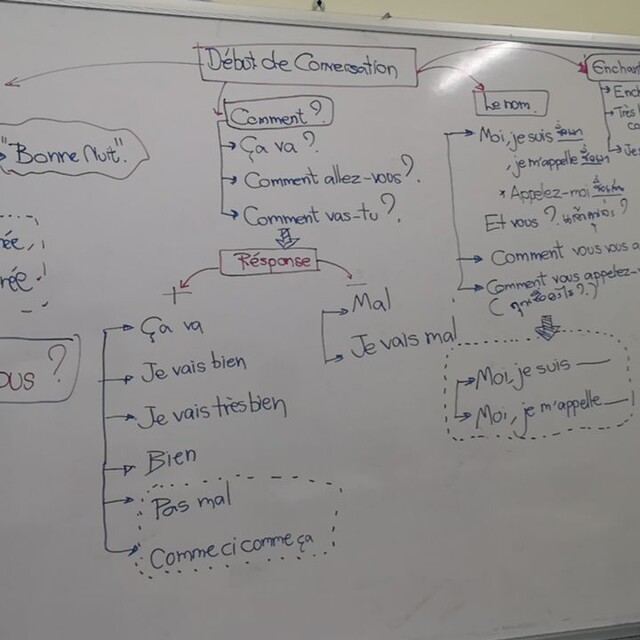 Début de Conversation
"Bonne Nuit."
Comment?
Ça va?
Comment allez-vous?
Comment vas-tu?
Résponse
+
Ça va
Je vais bien
Je vais très bien
Bien
Pas mal
Comme ci comme ça
–
Mal
Je vais mal
Le nom.
Moi, je suis
, je m'appelle
* Appelez-moi
Et vous?
Comment vous vous a
Comment vous appelez-
Moi, je suis ——
Moi, je m'appelle ——
Enchant
Ench
Très
co
Je
ée,
rée
OUS ?